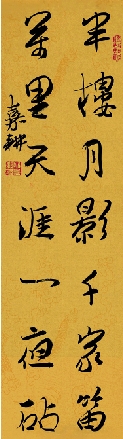 半樓月影千家笛
萬里天涯一夜砧